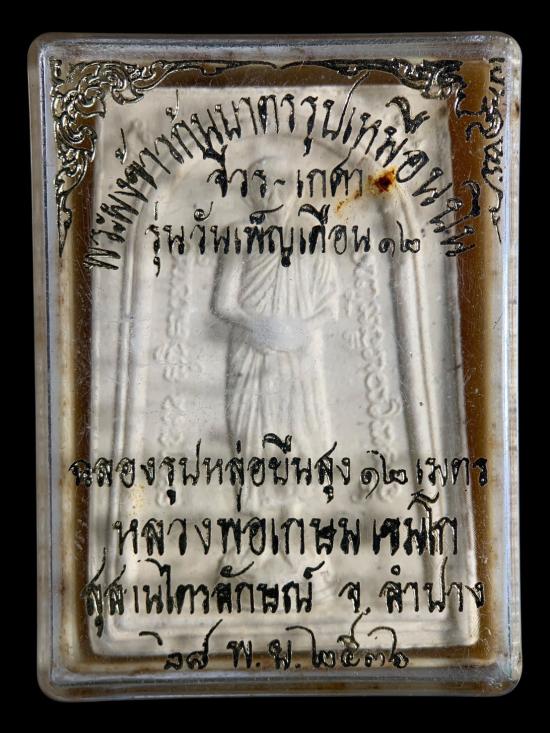 พระผงข้าวก้นบาตรรูปเหมือนยืน
จีวร-เกศา
รุ่นวันเพ็ญเดือน ๑๒
ฉลองรูปหล่อยืนสูง ๑๒ เมตร
หลวงพ่อเกษม เขมโก
สุสานไตรลักษณ์ จ.ลำปาง
๒๘ พ.ย. ๒๕๓๖